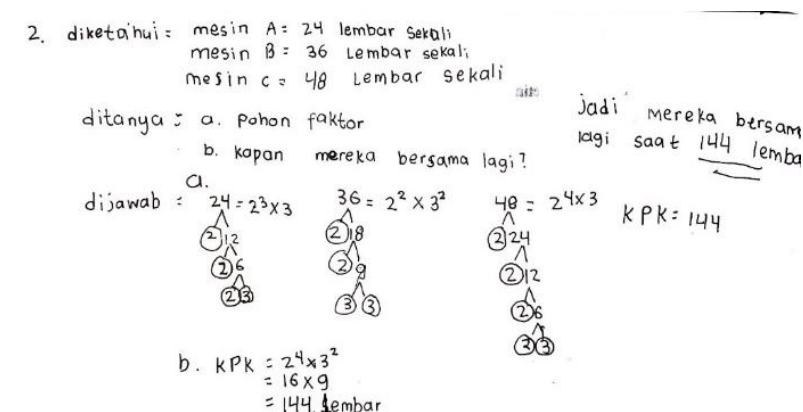 2. diketahui = mesin A = 24 lembar sekali
mesin B = 36 Lembar sekali
mesin C = 48 Lembar sekali
ditanya : a. Pohon faktor
b. kapan mereka bersama lagi?
jadi mereka bersam
lagi saat 144 lemba
dijawab :
a.
24 = 2³ x 3
2 12
2 6
2 3
36 = 2² x 3²
2 18
2 9
3 3
48 = 2⁴ x 3
2 24
2 12
2 6
2 3
KPK = 144
b. KPK = 2⁴ x 3²
= 16 x 9
= 144 lembar